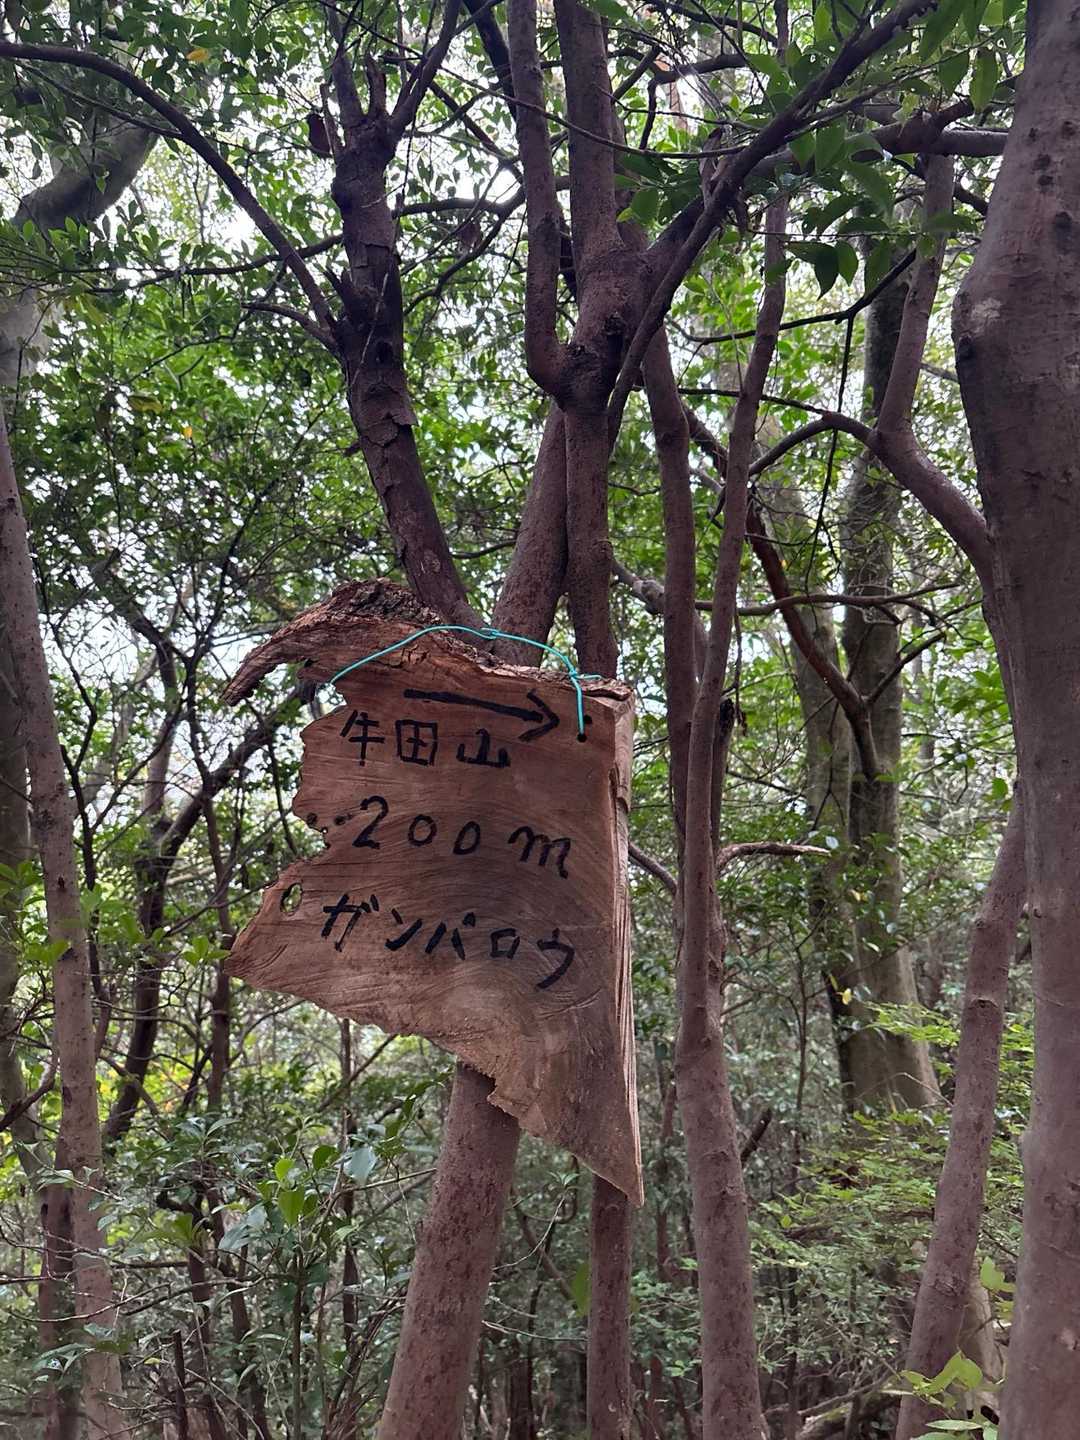 →
牛田山
200m
ガンバロウ